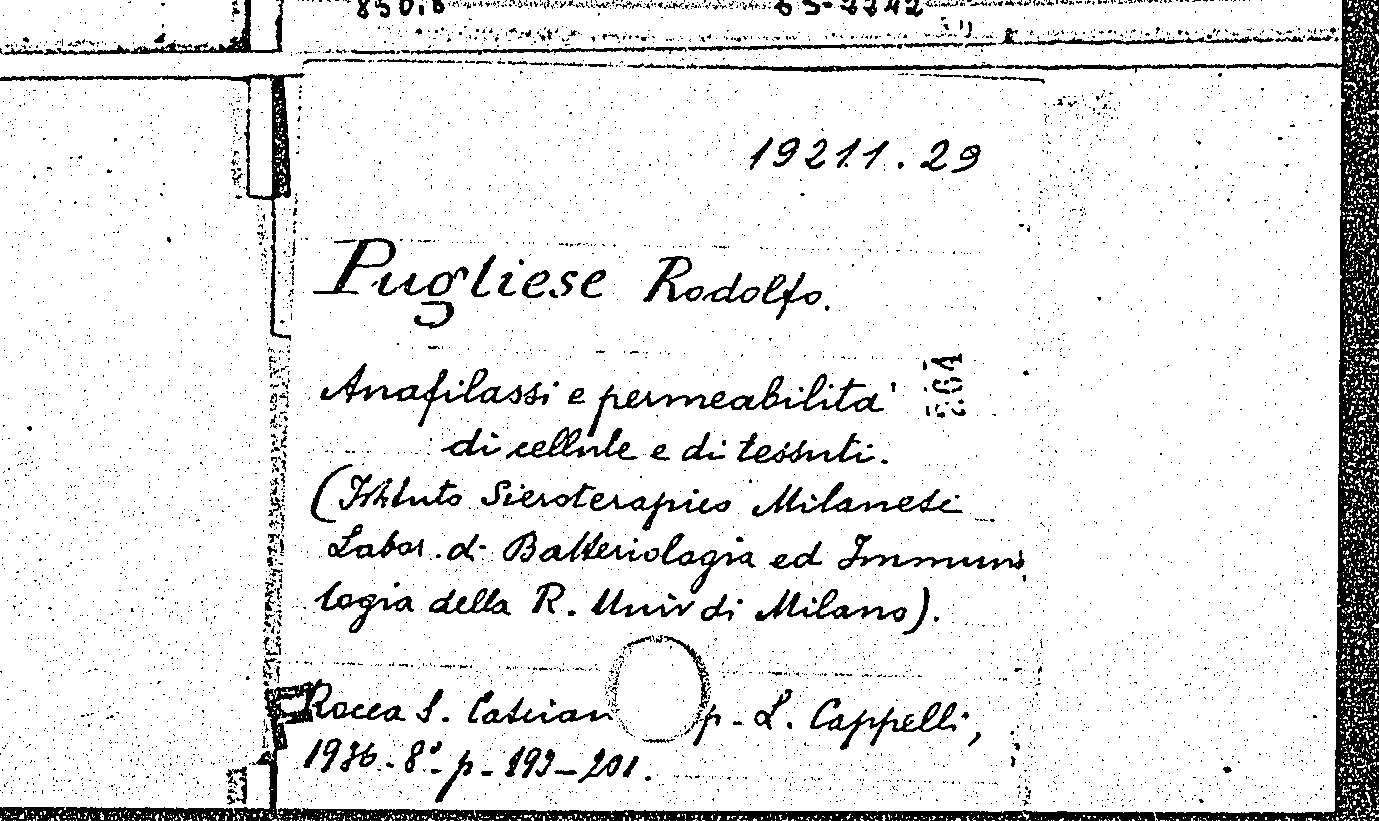 19211.29
Pugliese Rodolfo.
Anafilassi e permeabilita'
di cellule e di tessuti.
(Istituto Sieroterapico Milanese
Labor. di Batteriologia ed Immuno
logia della R. Univ di Milano).
Rocca S. Cascian p. L. Cappelli,
1936. 8º. p. 193-201.